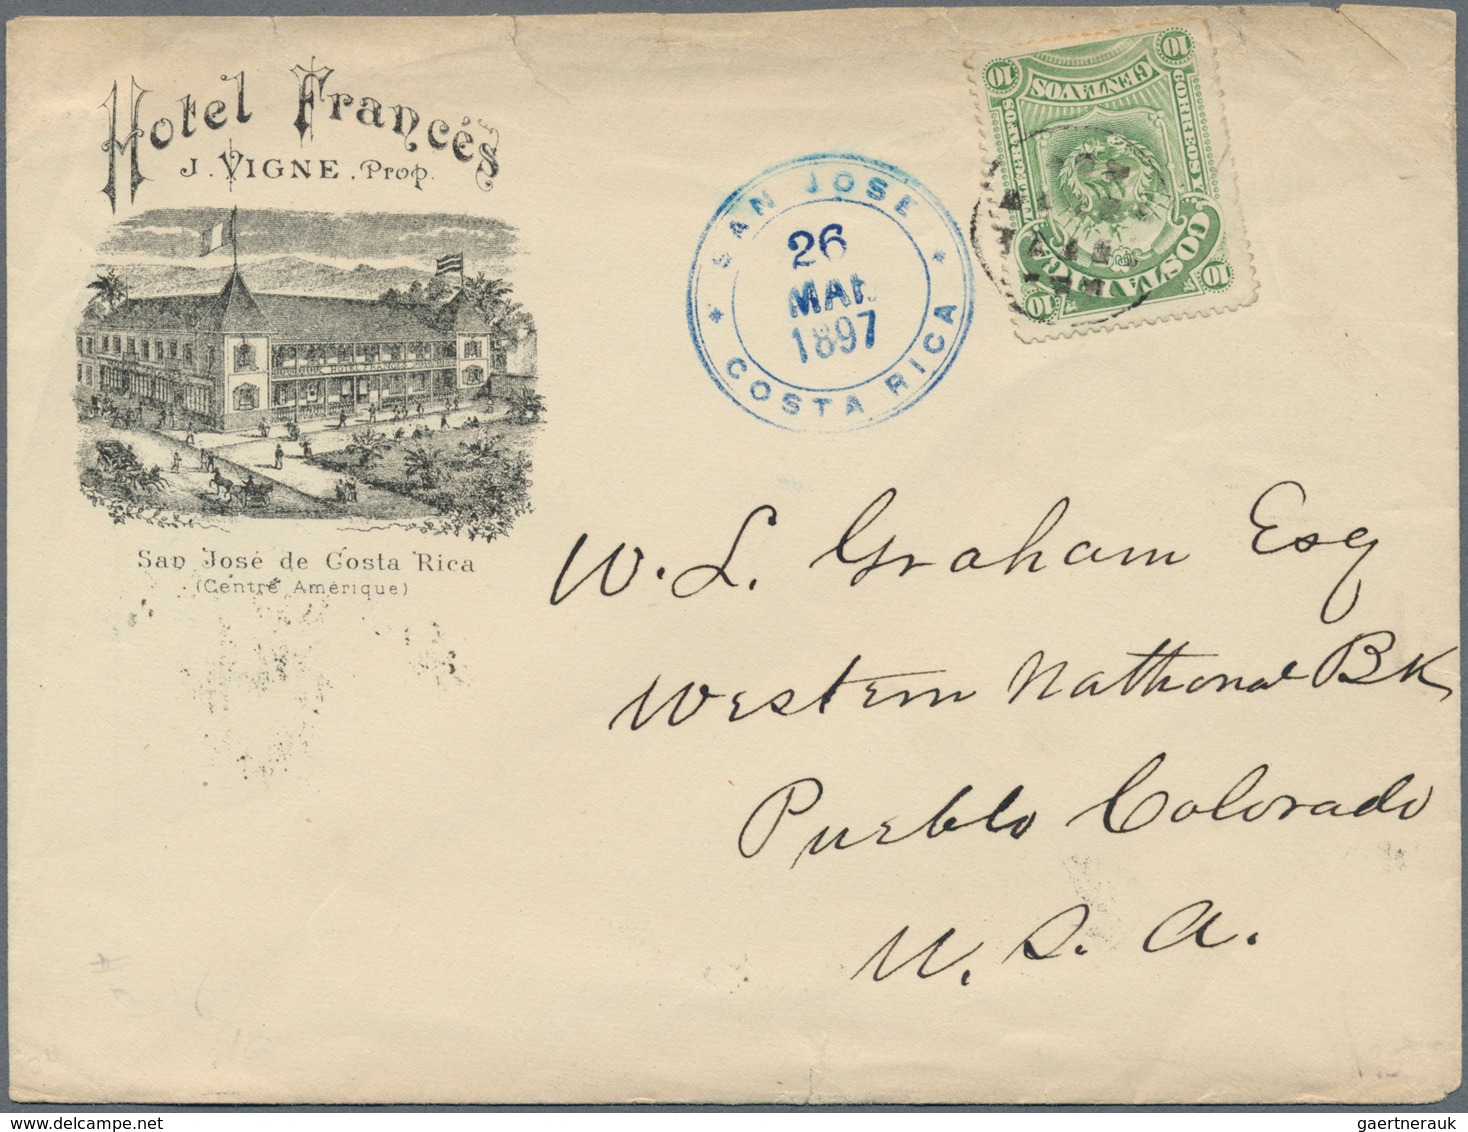 Hotel Francés
J. VIGNE. Prop.
HOTEL FRANCES
San José de Costa Rica
(Centre Amérique)
* SAN JOSE *
26
MAR
1897
COSTA RICA
10 CENTAVOS 10
CORREOS Y
TELEGRAFOS
COSTA RICA
10 10
W. L. Graham Esq
Western National Bk
Pueblo Colorado
U. S. A.
gaertnerauk